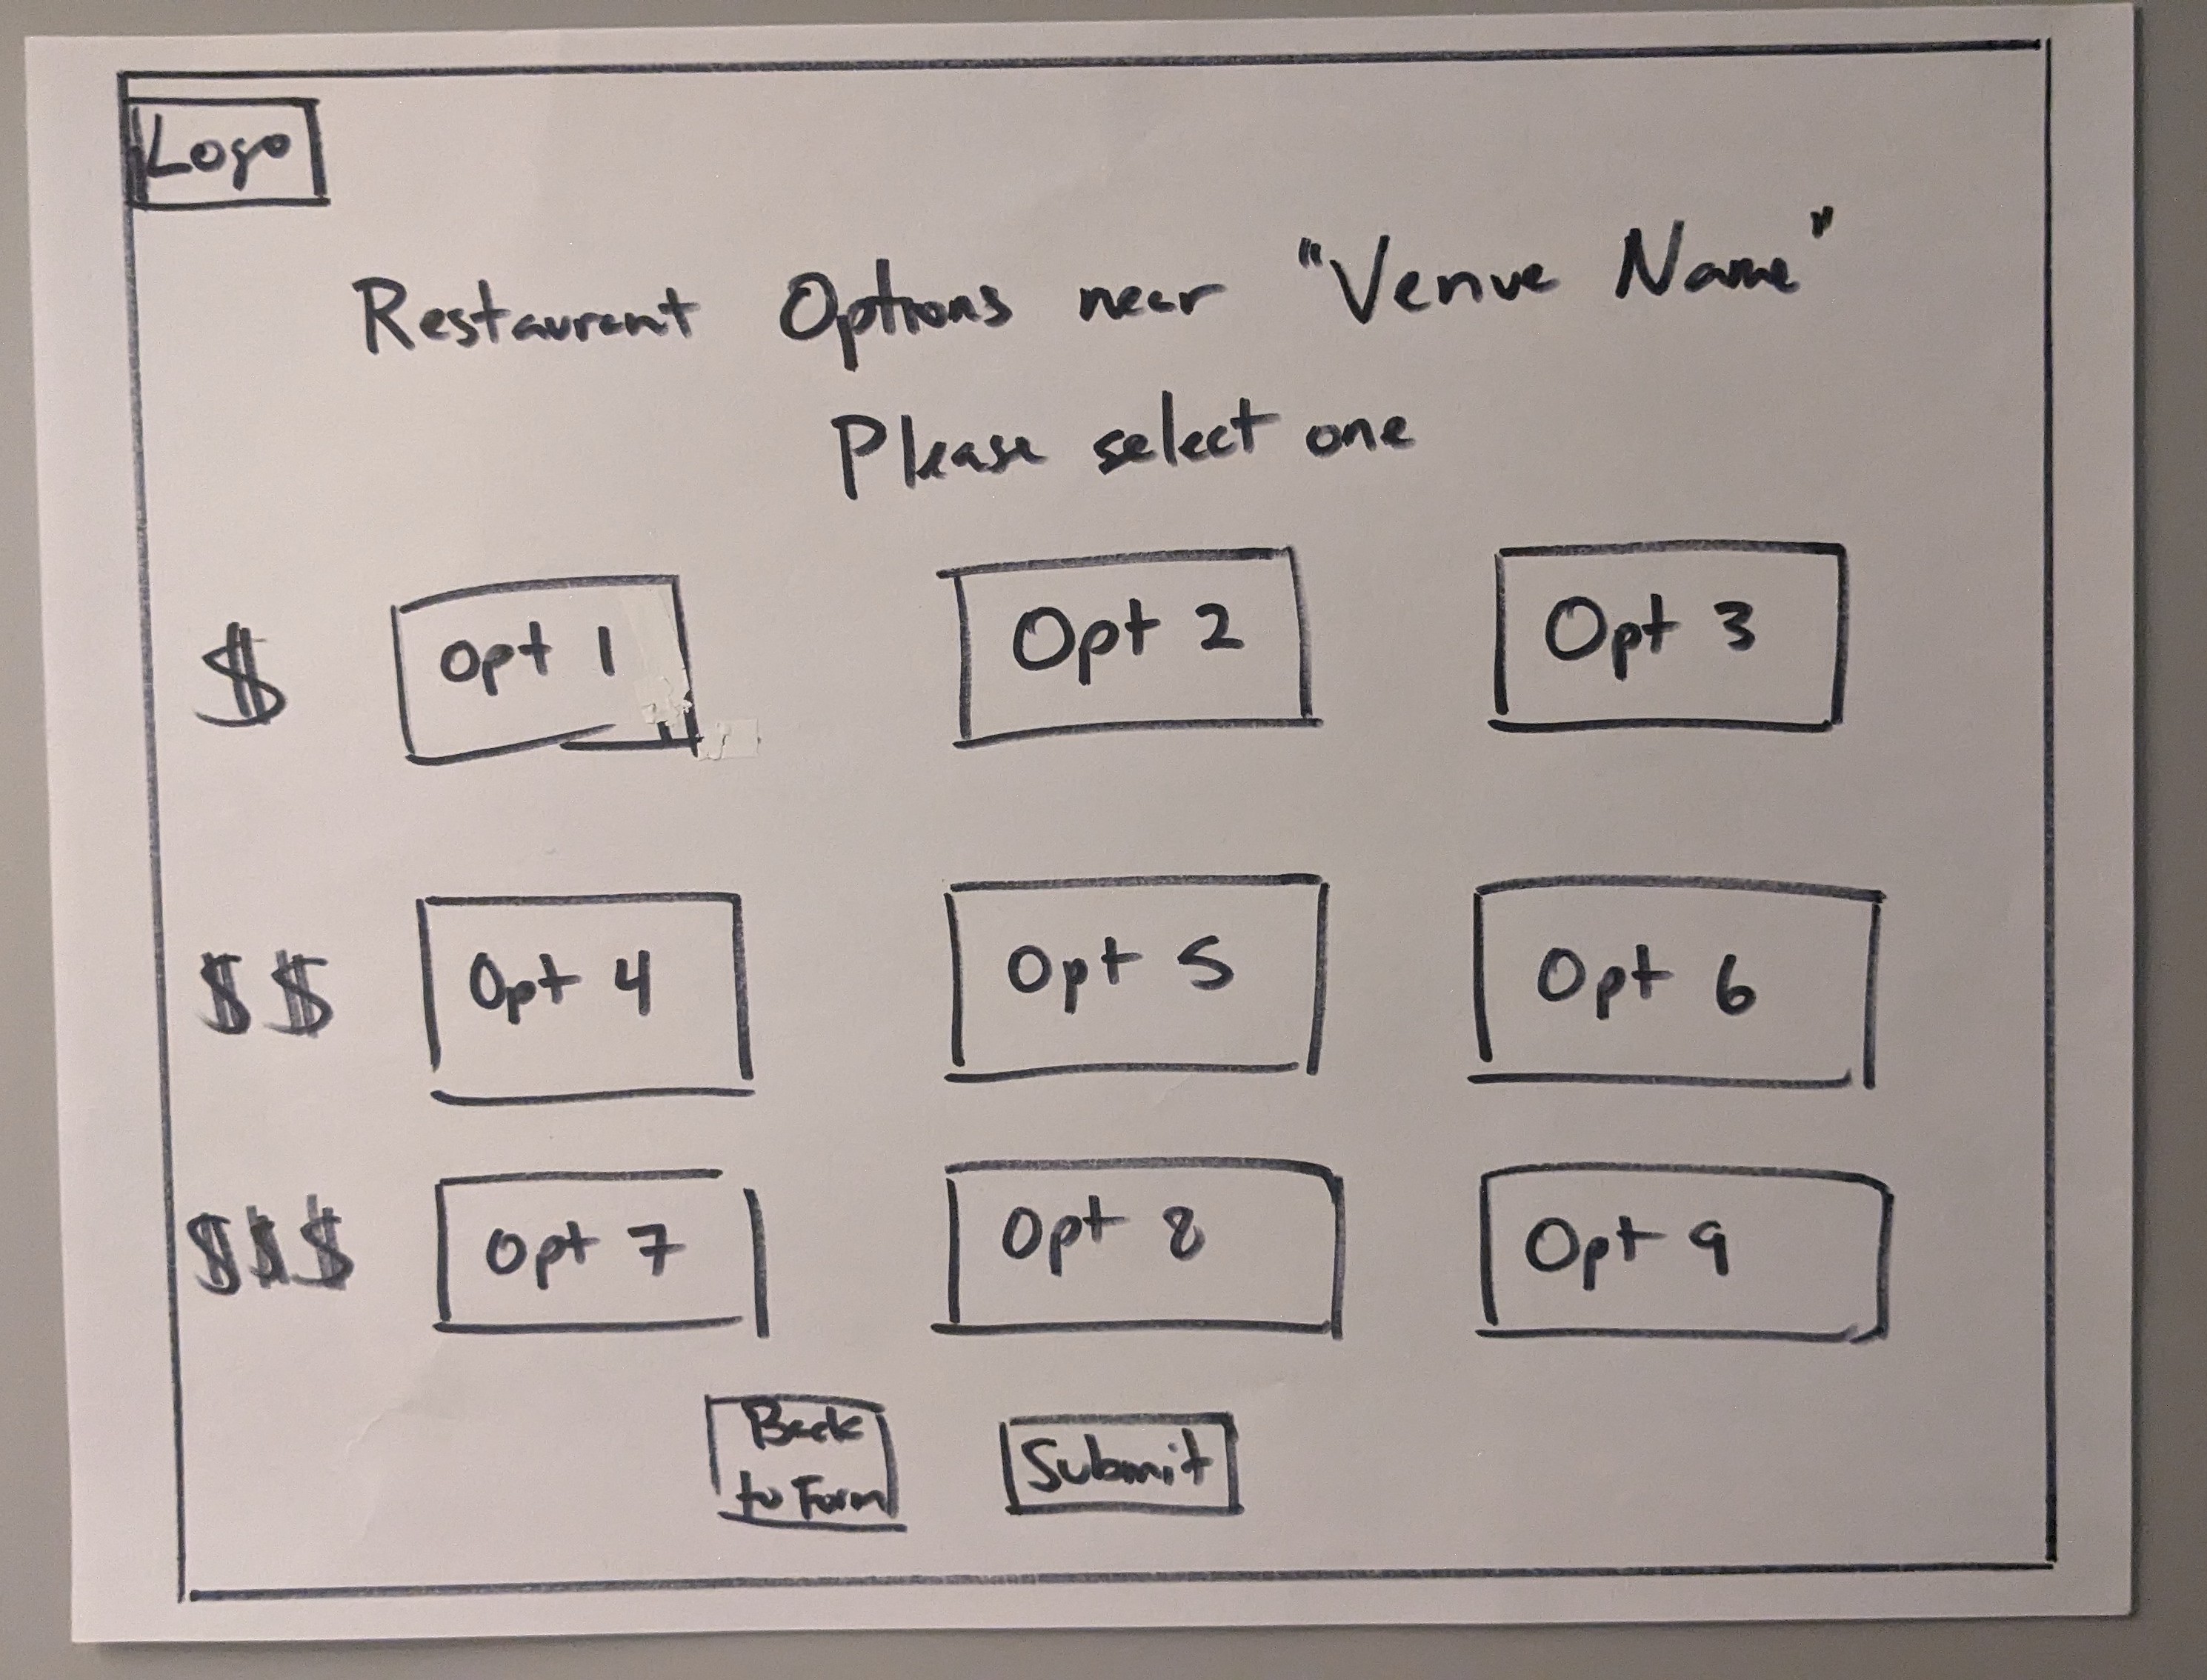 Logo
Restaurant Options near "Venue Name"
Please select one
$ Opt 1 Opt 2 Opt 3
$$ Opt 4 Opt 5 Opt 6
$$$ Opt 7 Opt 8 Opt 9
Back
to Form
Submit